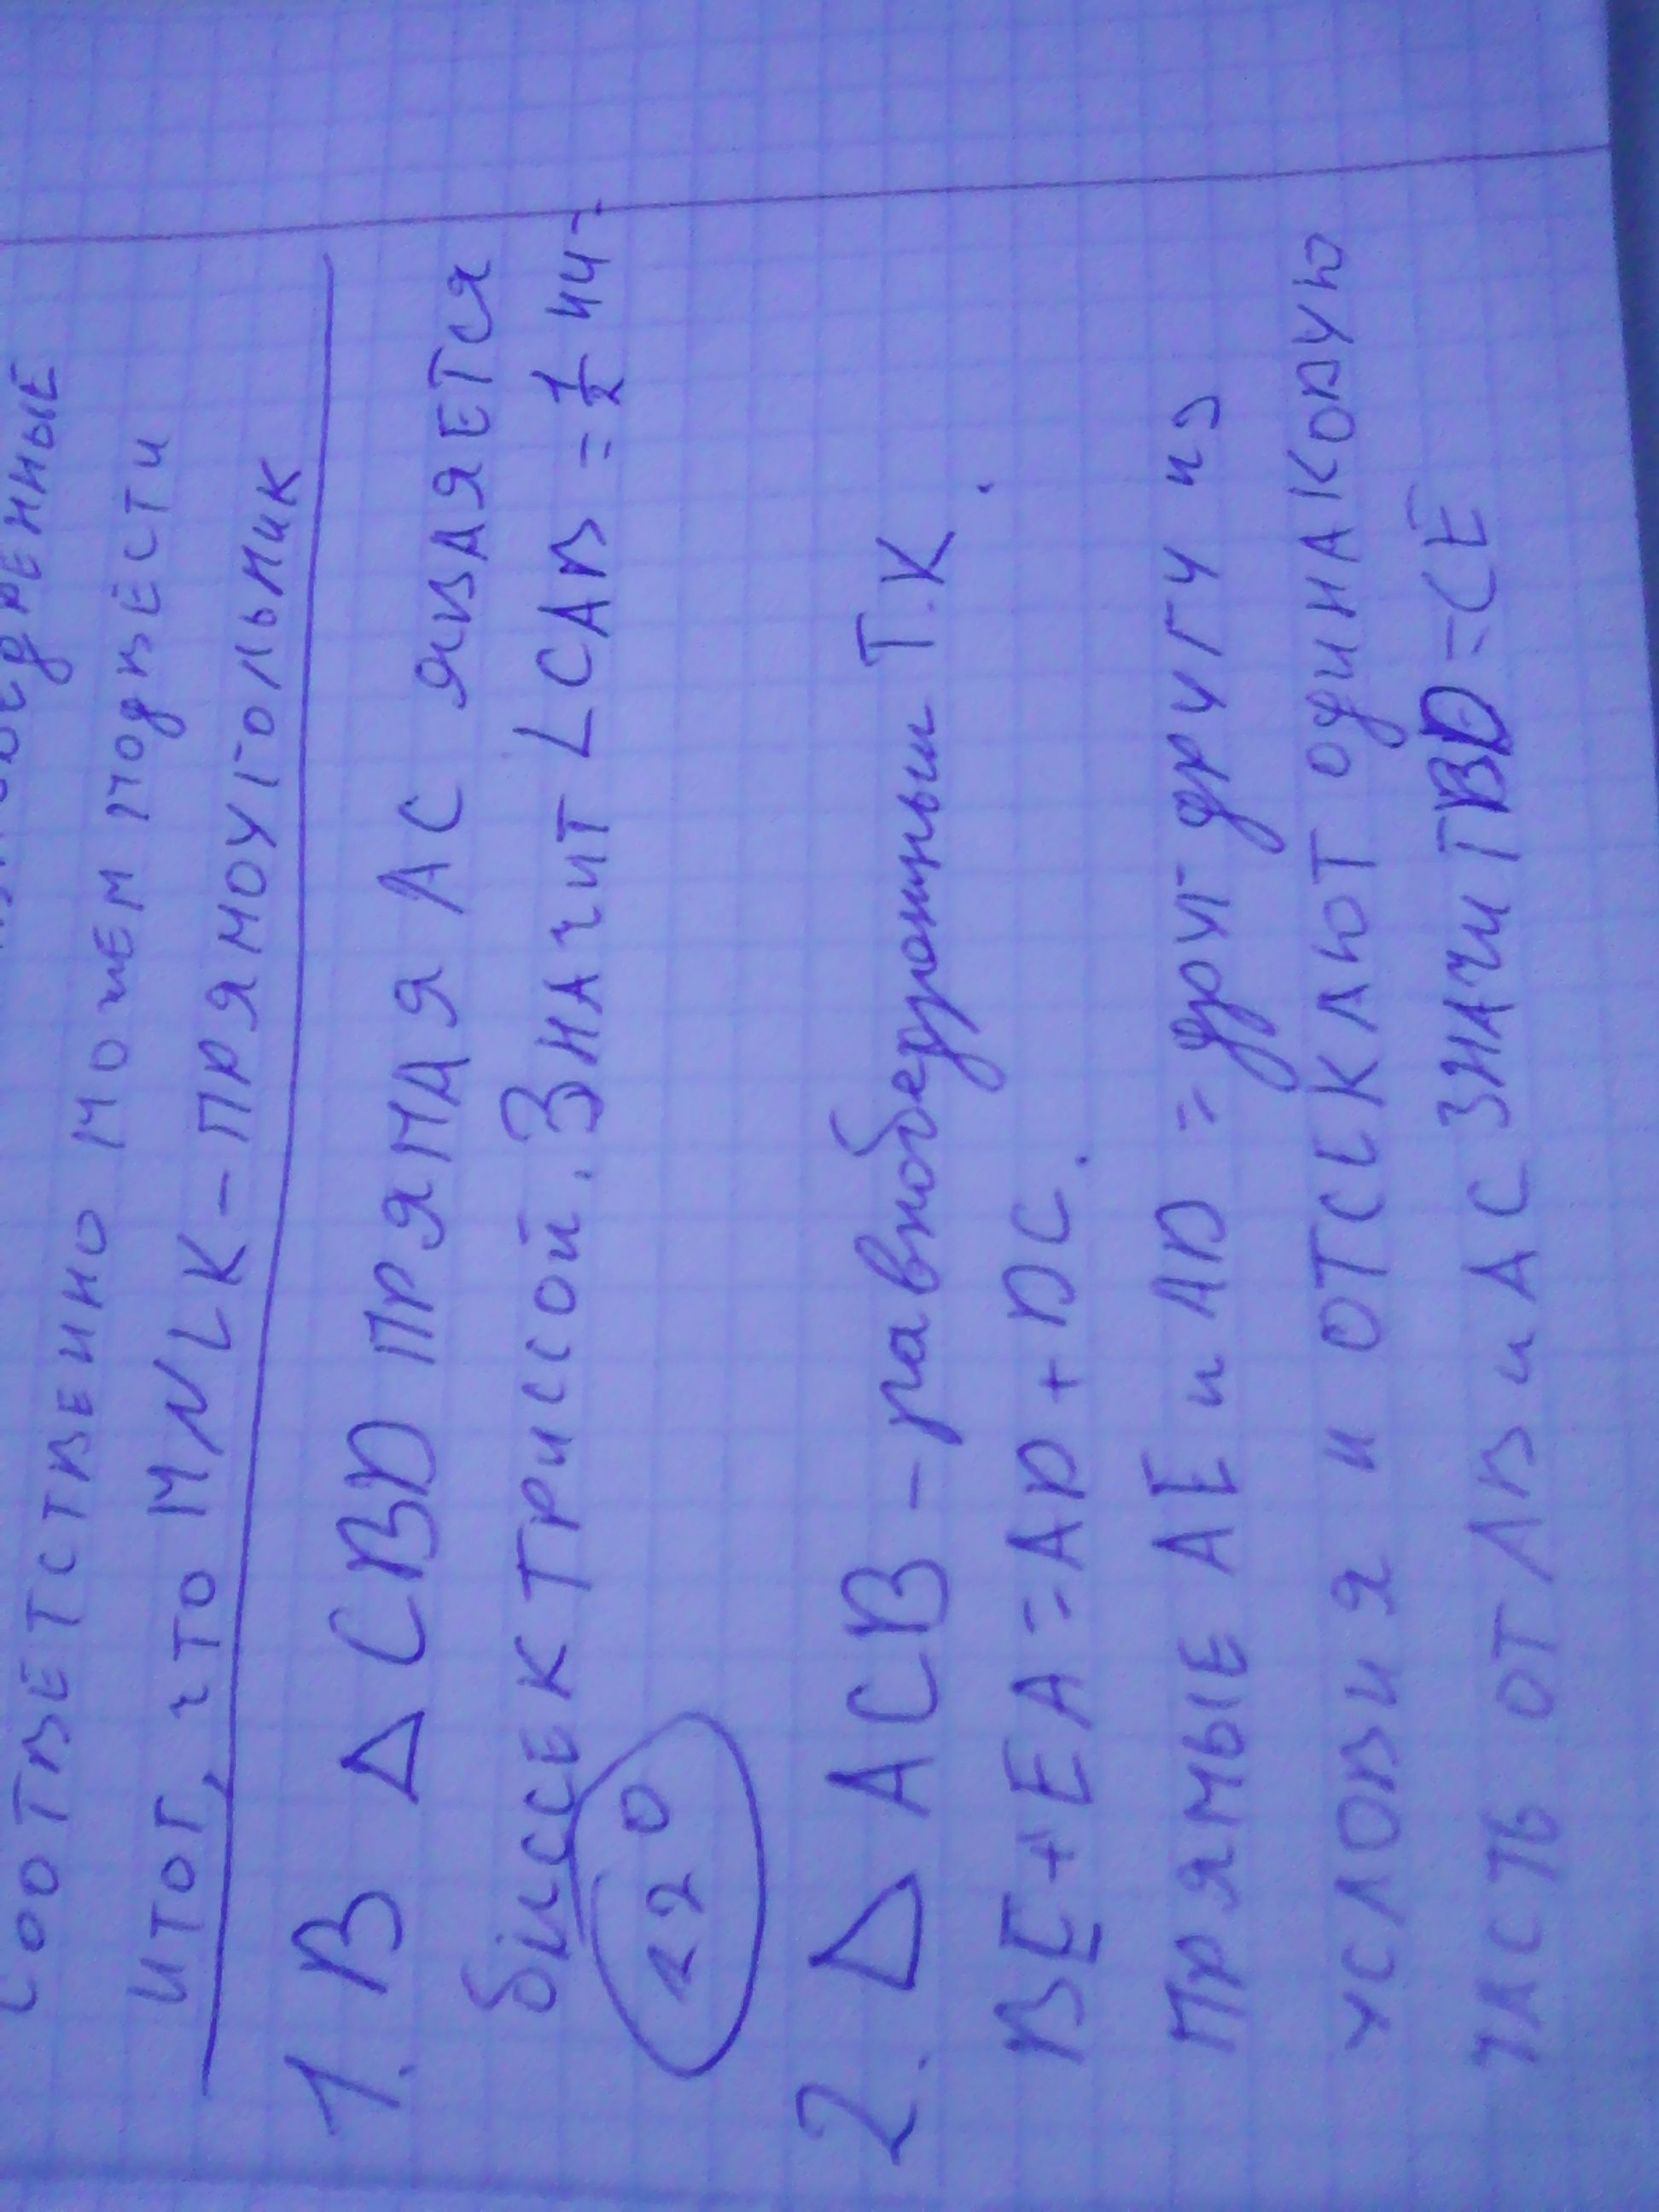 соответственно можем подвести
итог, что MNLK - прямоугольник
1. В △ CBD прямая AC является
биссектриссой. Значит ∠CAB = 1/2
120
2. △ ACB - равнобедренный т.к.
BE + EA = AD + DC.
Прямые AE и AD = друг другу из
условия и отсекают одинаковую
часть от AB и AC значит BD = CE